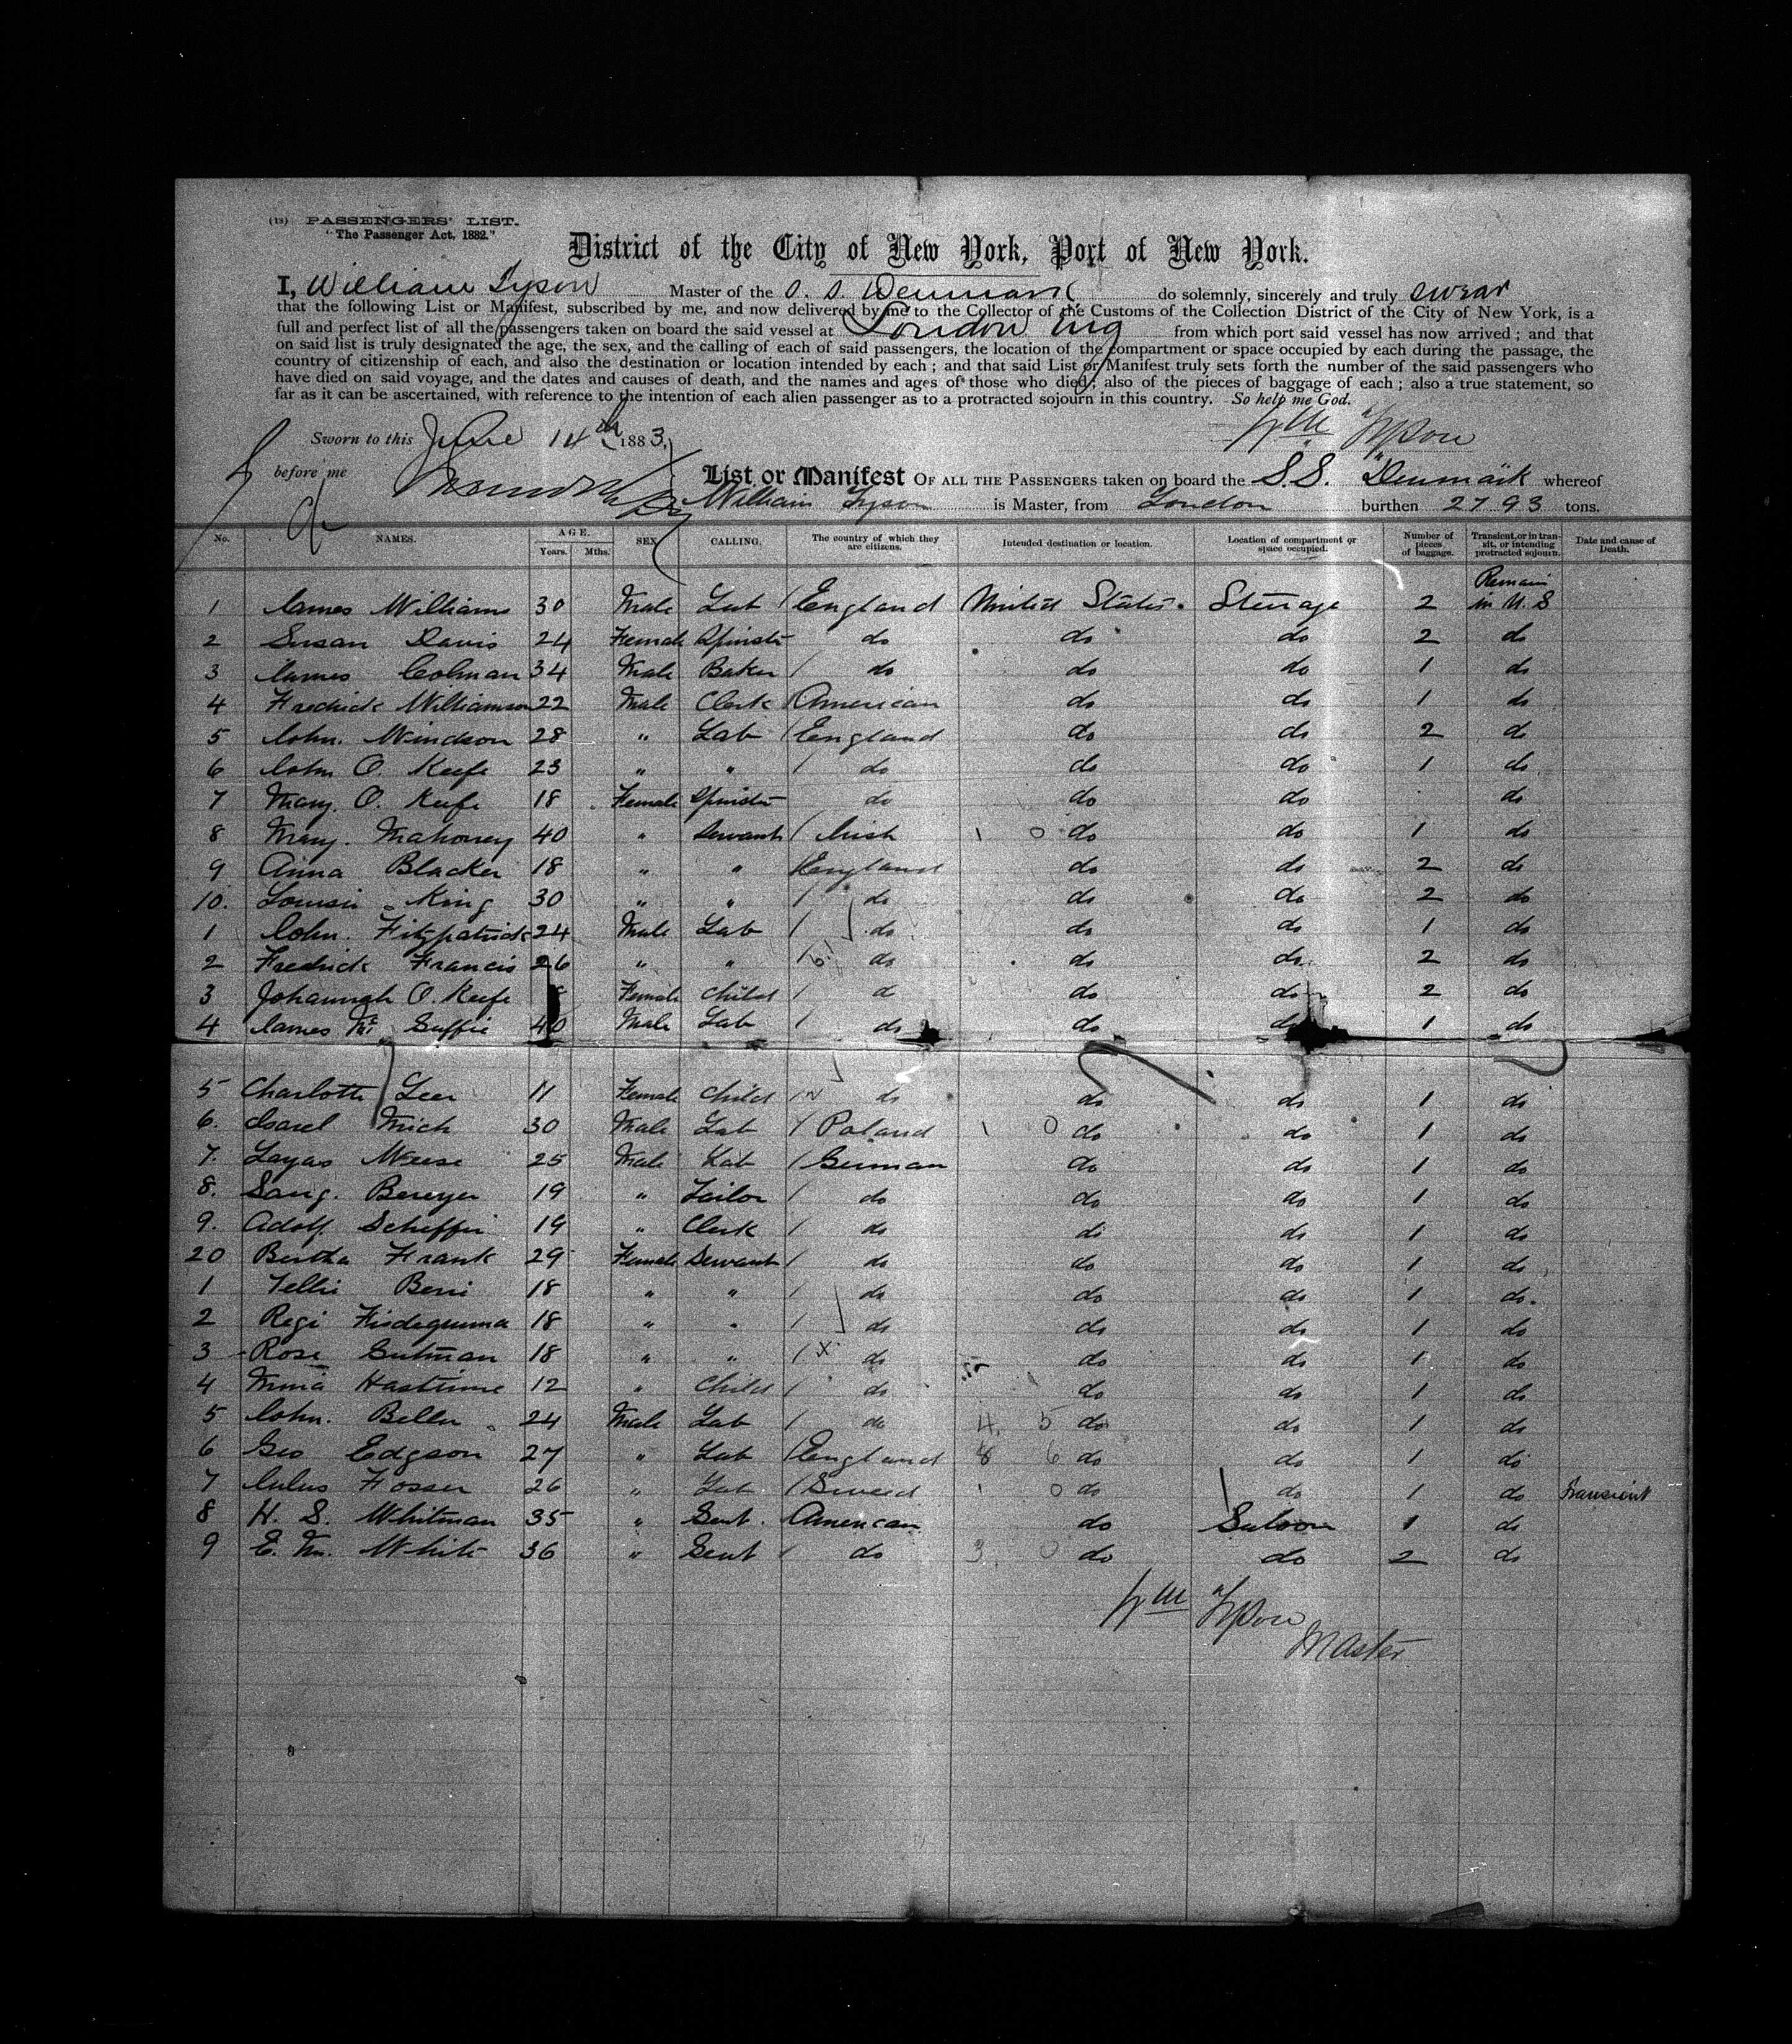 (13) PASSENGERS' LIST.
"The Passenger Act, 1882."
District of the City of New York, Port of New York.
I, William Tyson Master of the S. S. Denmark do solemnly, sincerely and truly swear
that the following List or Manifest, subscribed by me, and now delivered by me to the Collector of the Customs of the Collection District of the City of New York, is a
full and perfect list of all the passengers taken on board the said vessel at London Eng from which port said vessel has now arrived; and that
on said list is truly designated the age, the sex, and the calling of each of said passengers, the location of the compartment or space occupied by each during the passage, the
country of citizenship of each, and also the destination or location intended by each; and that said List or Manifest truly sets forth the number of the said passengers who
have died on said voyage, and the dates and causes of death, and the names and ages of those who died; also of the pieces of baggage of each; also a true statement, so
far as it can be ascertained, with reference to the intention of each alien passenger as to a protracted sojourn in this country. So help me God.
Sworn to this June 14th 1883, Wm Tyson
before me
List or Manifest OF ALL THE PASSENGERS taken on board the S.S. Denmark whereof
William Tyson is Master, from London burthen 2793 tons.
No. NAMES. AGE. Years. Mths. SEX CALLING. The country of which they are citizens. Intended destination or location. Location of compartment or space occupied. Number of pieces of baggage. Transient, or in transit, or intending protracted sojourn. Date and cause of Death.
1 James Williams 30 Male Lab England United States. Steerage 2 Remain in U.S
2 Susan Davis 24 Female Spinster do do do 2 do
3 James Colman 34 Male Baker do do do 1 do
4 Fredrick Williamson 22 Male Clerk American do do 1 do
5 John. Windson 28 " Lab England do do 2 do
6 John O. Keefe 23 " " do do do 1 do
7 Mary. O. Keefe 18 Female Spinster do do do do
8 Mary. Mahoney 40 " Servant Irish 1 0 do do 1 do
9 Anna Blacker 18 " " England do do 2 do
10. Louisa King 30 " " do do do 2 do
1 John. Fitzpatrick 24 Male Lab do do do 1 do
2 Fredrick Francis 26 " " do do do 2 do
3 Johannah O. Keefe Female Child d do do 2 do
4 James Mc Guffie 40 Male Lab do do do 1 do
5 Charlotte Leer 11 Female Child do do do 1 do
6. Isael Mich 30 Male Lab Poland 1 0 do do 1 do
7. Layas Weese 25 Male Lab German do do 1 do
8. Sang. Bereyer 19 " Tailor do do do 1 do
9. Adolf Scheffer 19 " Clerk do do do 1 do
20 Bertha Frank 29 Female Servant do do do 1 do
1 Tellie Beni 18 " " do do do 1 do.
2 Regi 18 " " do do do 1 do
3 Rose Gutman 18 " " do do do 1 do
4 12 " Child do do do 1 do
5 John. Beller 24 Male Lab do 4. 5 do do 1 do
6 Geo Edgson 27 " Lab England 8 6 do do 1 do
7 Julus Fosser 26 " Lab Sweed 1 0 do do 1 do Transient
8 H. S. Whitman 35 " Gent. American do Saloon 1 do
9 E. M. White 36 " Gent do 3. 0 do do 2 do
Wm Tyson
Master